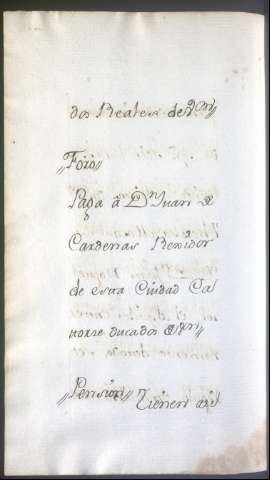 dos Reales de Von//
//Foro//
Paga â Dn Juan
Cardenas Rexidor
de esta Ciudad Ca
torze ducados
//Pension// Tienen